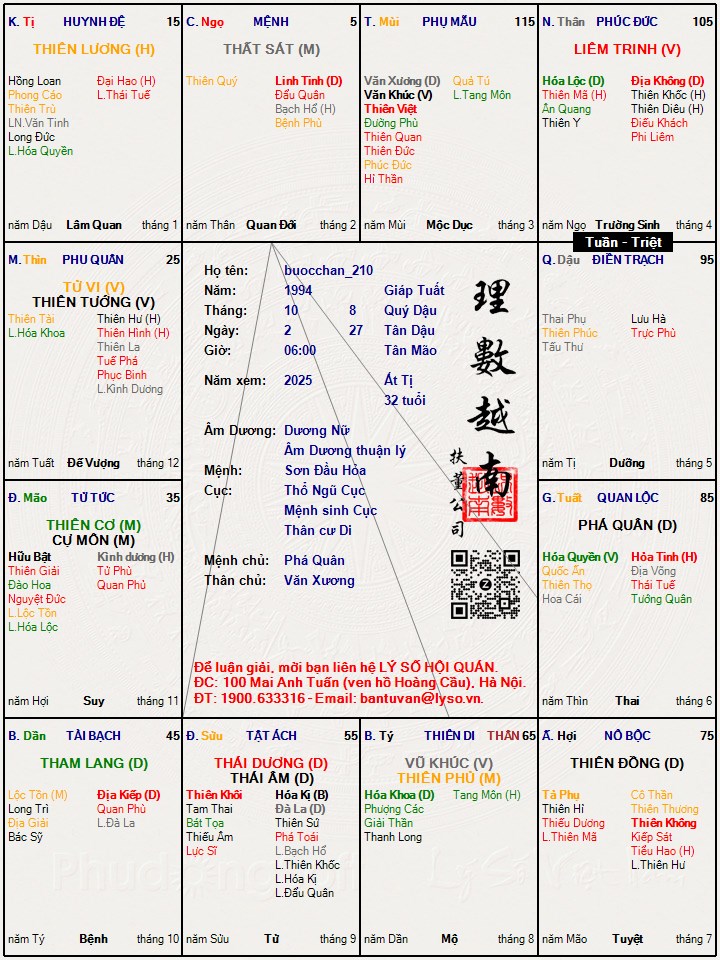 K. Tị HUYNH ĐỆ 15
THIÊN LƯƠNG (H)
Hồng Loan Đại Hao (H)
Phong Cáo L.Thái Tuế
Thiên Trù
LN.Văn Tinh
Long Đức
L.Hóa Quyền
năm Dậu Lâm Quan tháng 1
C. Ngọ MỆNH 5
THẤT SÁT (M)
Thiên Quý Linh Tinh (D)
Đẩu Quân
Bạch Hổ (H)
Bệnh Phù
năm Thân Quan Đới tháng 2
T. Mùi PHỤ MẪU 115
Văn Xương (D) Quả Tú
Văn Khúc (V) L.Tang Môn
Thiên Việt
Đường Phù
Thiên Quan
Thiên Đức
Phúc Đức
Hỉ Thần
năm Mùi Mộc Dục tháng 3
N. Thân PHÚC ĐỨC 105
LIÊM TRINH (V)
Hóa Lộc (D) Địa Không (D)
Thiên Mã (H) Thiên Khốc (H)
Ân Quang Thiên Diêu (H)
Thiên Y Điếu Khách
Phi Liêm
năm Ngọ Trường Sinh tháng 4
Tuần - Triệt
M. Thìn PHU QUÂN 25
TỬ VI (V)
THIÊN TƯỚNG (V)
Thiên Tài Thiên Hư (H)
L.Hóa Khoa Thiên Hình (H)
Thiên La
Tuế Phá
Phục Binh
L.Kình Dương
năm Tuất Đế Vượng tháng 12
Họ tên: buocchan_210
Năm: 1994 Giáp Tuất
Tháng: 10 8 Quý Dậu
Ngày: 2 27 Tân Dậu
Giờ: 06:00 Tân Mão
Năm xem: 2025 Ất Tị
32 tuổi
Âm Dương: Dương Nữ
Âm Dương thuận lý
Mệnh: Sơn Đầu Hỏa
Cục: Thổ Ngũ Cục
Mệnh sinh Cục
Thân cư Di
Mệnh chủ: Phá Quân
Thân chủ: Văn Xương
理數越南
扶董公司
Để luận giải, mời bạn liên hệ LÝ SỐ HỘI QUÁN.
ĐC: 100 Mai Anh Tuấn (ven hồ Hoàng Cầu), Hà Nội.
ĐT: 1900.633316 - Email: bantuvan@lyso.vn.
Q. Dậu ĐIỀN TRẠCH 95
Thai Phụ Lưu Hà
Thiên Phúc Trực Phù
Tấu Thư
năm Tị Dưỡng tháng 5
Đ. Mão TỬ TỨC 35
THIÊN CƠ (M)
CỰ MÔN (M)
Hữu Bật Kình dương (H)
Thiên Giải Tử Phù
Đào Hoa Quan Phủ
Nguyệt Đức
L.Lộc Tồn
L.Hóa Lộc
năm Hợi Suy tháng 11
G. Tuất QUAN LỘC 85
PHÁ QUÂN (D)
Hóa Quyền (V) Hỏa Tinh (H)
Quốc Ấn Địa Võng
Thiên Thọ Thái Tuế
Hoa Cái Tướng Quân
năm Thìn Thai tháng 6
B. Dần TÀI BẠCH 45
THAM LANG (D)
Lộc Tồn (M) Địa Kiếp (D)
Long Trì Quan Phù
Địa Giải L.Đà La
Bác Sỹ
năm Tý Bệnh tháng 10
Đ. Sửu TẬT ÁCH 55
THÁI DƯƠNG (D)
THÁI ÂM (D)
Thiên Khôi Hóa Kị (B)
Tam Thai Đà La (D)
Bát Tọa Thiên Sứ
Thiếu Âm Phá Toái
Lực Sĩ L.Bạch Hổ
L.Thiên Khốc
L.Hóa Kị
L.Đẩu Quân
năm Sửu Tử tháng 9
B. Tý THIÊN DI THÂN 65
VŨ KHÚC (V)
THIÊN PHỦ (M)
Hóa Khoa (D) Tang Môn (H)
Phượng Các
Giải Thần
Thanh Long
năm Dần Mộ tháng 8
Ấ. Hợi NÔ BỘC 75
THIÊN ĐỒNG (D)
Tả Phụ Cô Thần
Thiên Hỉ Thiên Thương
Thiếu Dương Thiên Không
L.Thiên Mã Kiếp Sát
Tiểu Hao (H)
L.Thiên Hư
năm Mão Tuyệt tháng 7